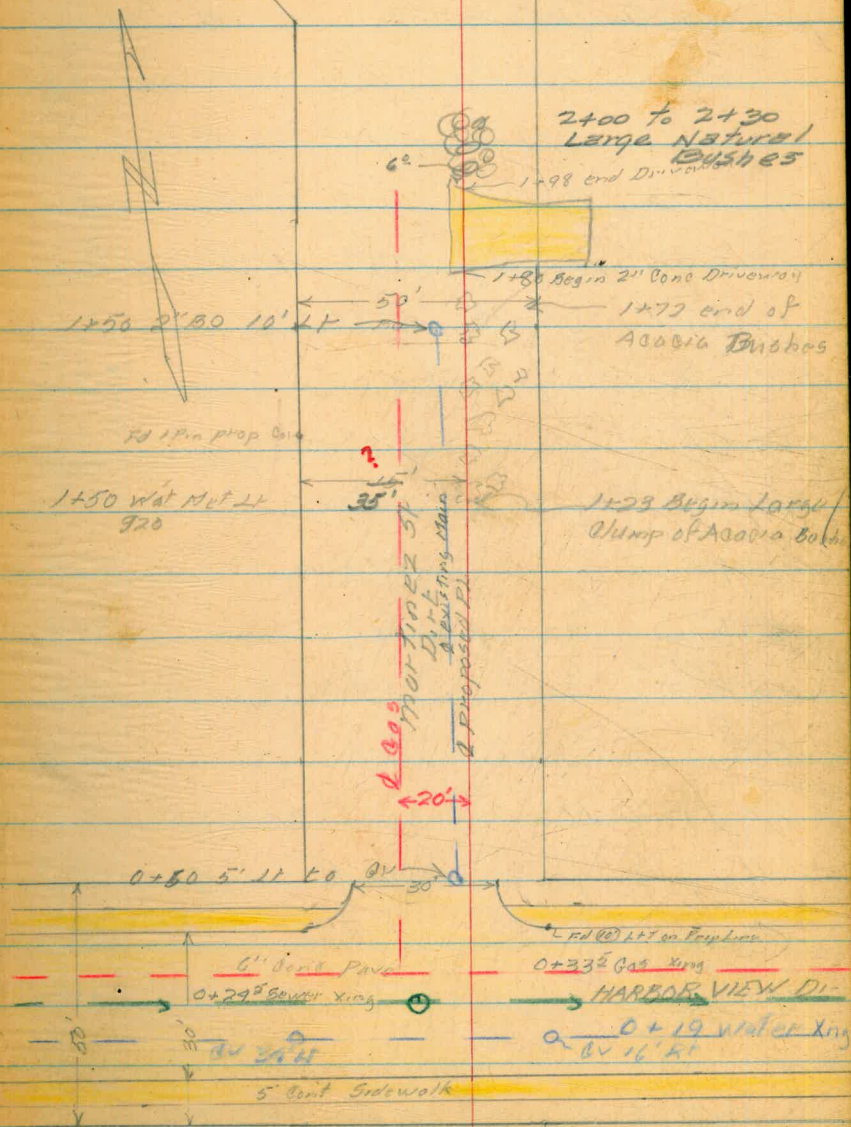 2+00 to 2+30
Large Natural
Bushes
6"
1+98 end Driveway
1+80 Begin 2" Conc Driveway
50'
1+72 end of
Acacia Bushes
1+50 2" BO 10' Lt
Fd 1 Pin prop Cor
?
35'
1+50 Wat Met Lt
920
1+29 Begin Large
Clump of Acacia Bushes
Martinez St
Dirt
existing Main
Proposed PL
Gas
20'
0+50 5' Lt to
GV
30'
Fd L+T on Prop Line
6" Conc Pave
0+33⁵ Gas Xing
0+24⁵ Sewer Xing
HARBOR VIEW Dr
0+19 Water Xng
GV 34' Lt
GV 16' Rt
30'
5' Cont Sidewalk